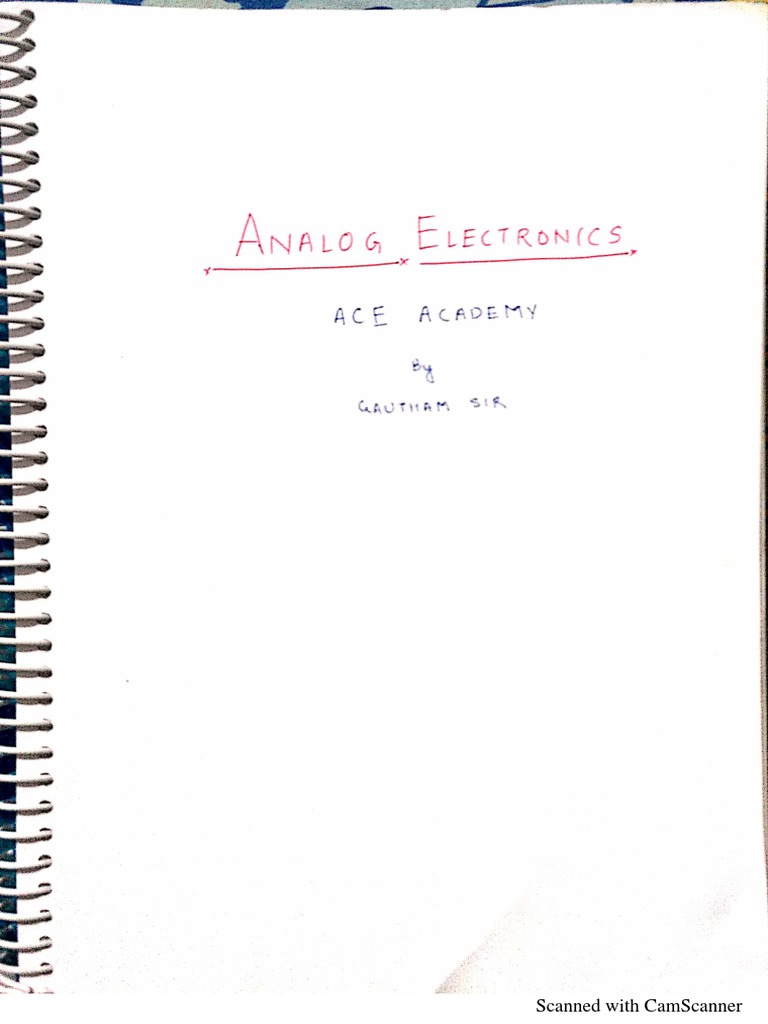 ANALOG ELECTRONICS
ACE ACADEMY
By
GAUTHAM SIR
Scanned with CamScanner